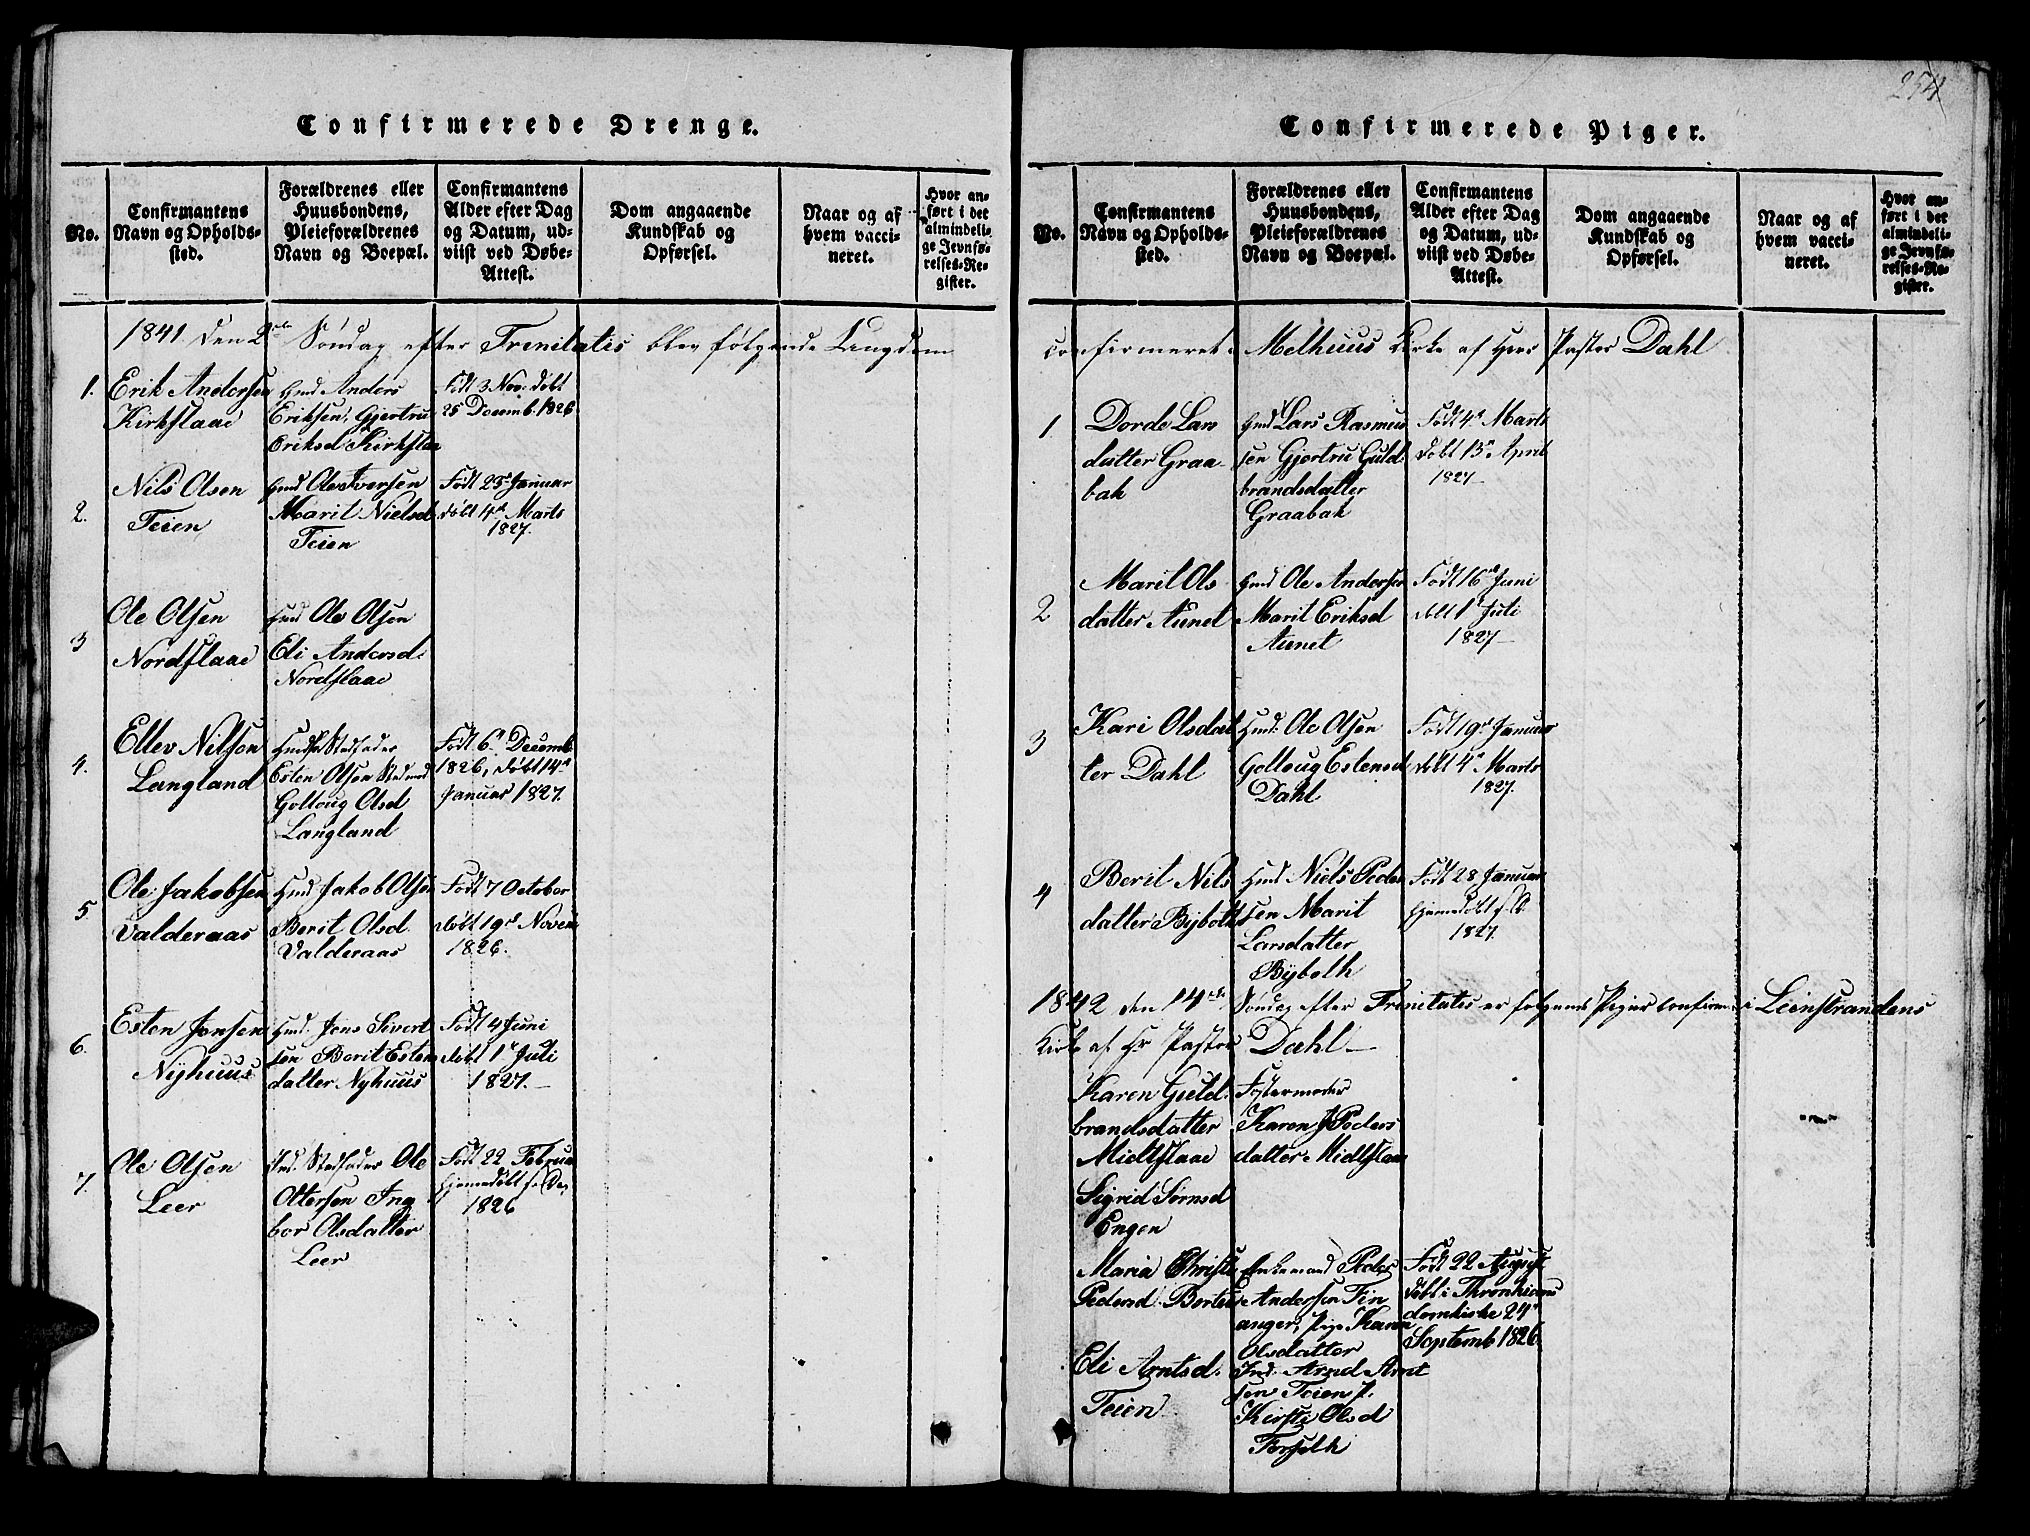 254
Confirmerede Drenge.
No.
Confirmantens
Navn og Opholds-
sted.
Forældrenes eller
Huusbondens,
Pleieforældrenes
Navn og Boepæl.
Confirmantens
Alder efter Dag
og Datum, ud-
viist ved Døbe-
Attest.
Dom angaaende
Kundskab og
Opførsel.
Naar og af
hvem vacci-
neret.
Hvor an-
ført i det
almindeli-
ge Jevnfø-
relses-Re-
gister.
1841 den 2den Søndag efter Trenitatis blev følgende Ungdom
1.
Erik Andersen
Kirkflaae
Gmd Anders
Eriksen, Gjertru
Eriksd Kirkflaa
Født 3 Nov. døbt
25 Decemb. 1826
2.
Nils Olsen
Teien
Gmd Ole Iversen
Marit Nielsd
Teien
Født 25 Januar
døbt 4de Marts
1827.
3
Ole Olsen
Nordflaae
Hmd Ole Olsen
Eli Andersd.
Nordflaae
4.
Ellev Nilsen
Langland
Stedfader
Esten Olsen
Golloug Olsd
Langland
Født 6 Decemb.
1826, døbt 14de
Januar 1827.
5
Ole Jakobsen
Valderaas
Hmd Jakob Olsen
Berit Olsd.
Valderaas
Født 7 October
døbt 19de Novem
1826.
6.
Esten Jonsen
Nyhuus
Hmd. Jons Sivert
sen Berit Esten
datter Nyhuus
Født 4 Juni
døbt 1 Juli
1827.
7.
Ole Olsen
Leer
Ind. Stedfader Ole
Ottersen Ing
bor Olsdatter
Leer
Født 22 Februa
hjemedøbt
1826
Confirmerede Piger.
No.
Confirmantens
Navn og Opholds-
sted.
Forældrenes eller
Huusbondens,
Pleieforældrenes
Navn og Boepæl.
Confirmantens
Alder efter Dag
og Datum, ud-
viist ved Døbe-
Attest.
Dom angaaende
Kundskab og
Opførsel.
Naar og af
hvem vacci-
neret.
Hvor an-
ført i det
almindeli-
ge Jevnfø-
relses-Re-
gister.
confirmeret i Melhuus Kirke af Herr Pastor Dahl
1
Dorde Lars
datter Graa-
bak
Gmd Lars Rasmus
sen Gjertru Guld-
brandsdatter
Graabak
Født 4de Marts
døbt 13de April
1827
2
Marit Ols
datter Aunet
Gmd Ole Andersen
Marit Eriksd
Aunet
Født 16de Juni
døbt 1 Juli
1827
3
Kari Olsdat
ter Dahl
Hmd. Ole Olsen
Golloug Estensd
Dahl
Født 19de Januar
døbt 4de Marts
1827.
4
Berit Nils
datter Bybolth
Hmd Niels Peder
sen Marit
Larsdatter
Bybolth
Født 28 Januar
hjemedøbt
1827.
1842 den 14de Søndag efter Trenitatis er følgende Piger confirm i Leinstrandens
Kirke af Hr Pastor Dahl
Karen Guld.
brandsdatter
Midtflaae
Fostermoder
Karen Peders
datter Midtflaae
Sigrid Sørnsd
Engen
Maria Christi
Pedersd.
Enkemand Peder
Andersen Fin
anger, Pige Karen
Olsdatter
Født 22 August
døbt i Thronhiems
domkirke 24
Septemb 1826.
Eli Arntsd.
Teien
Ind. Arnt
sen Teien
Kirsti Olsd